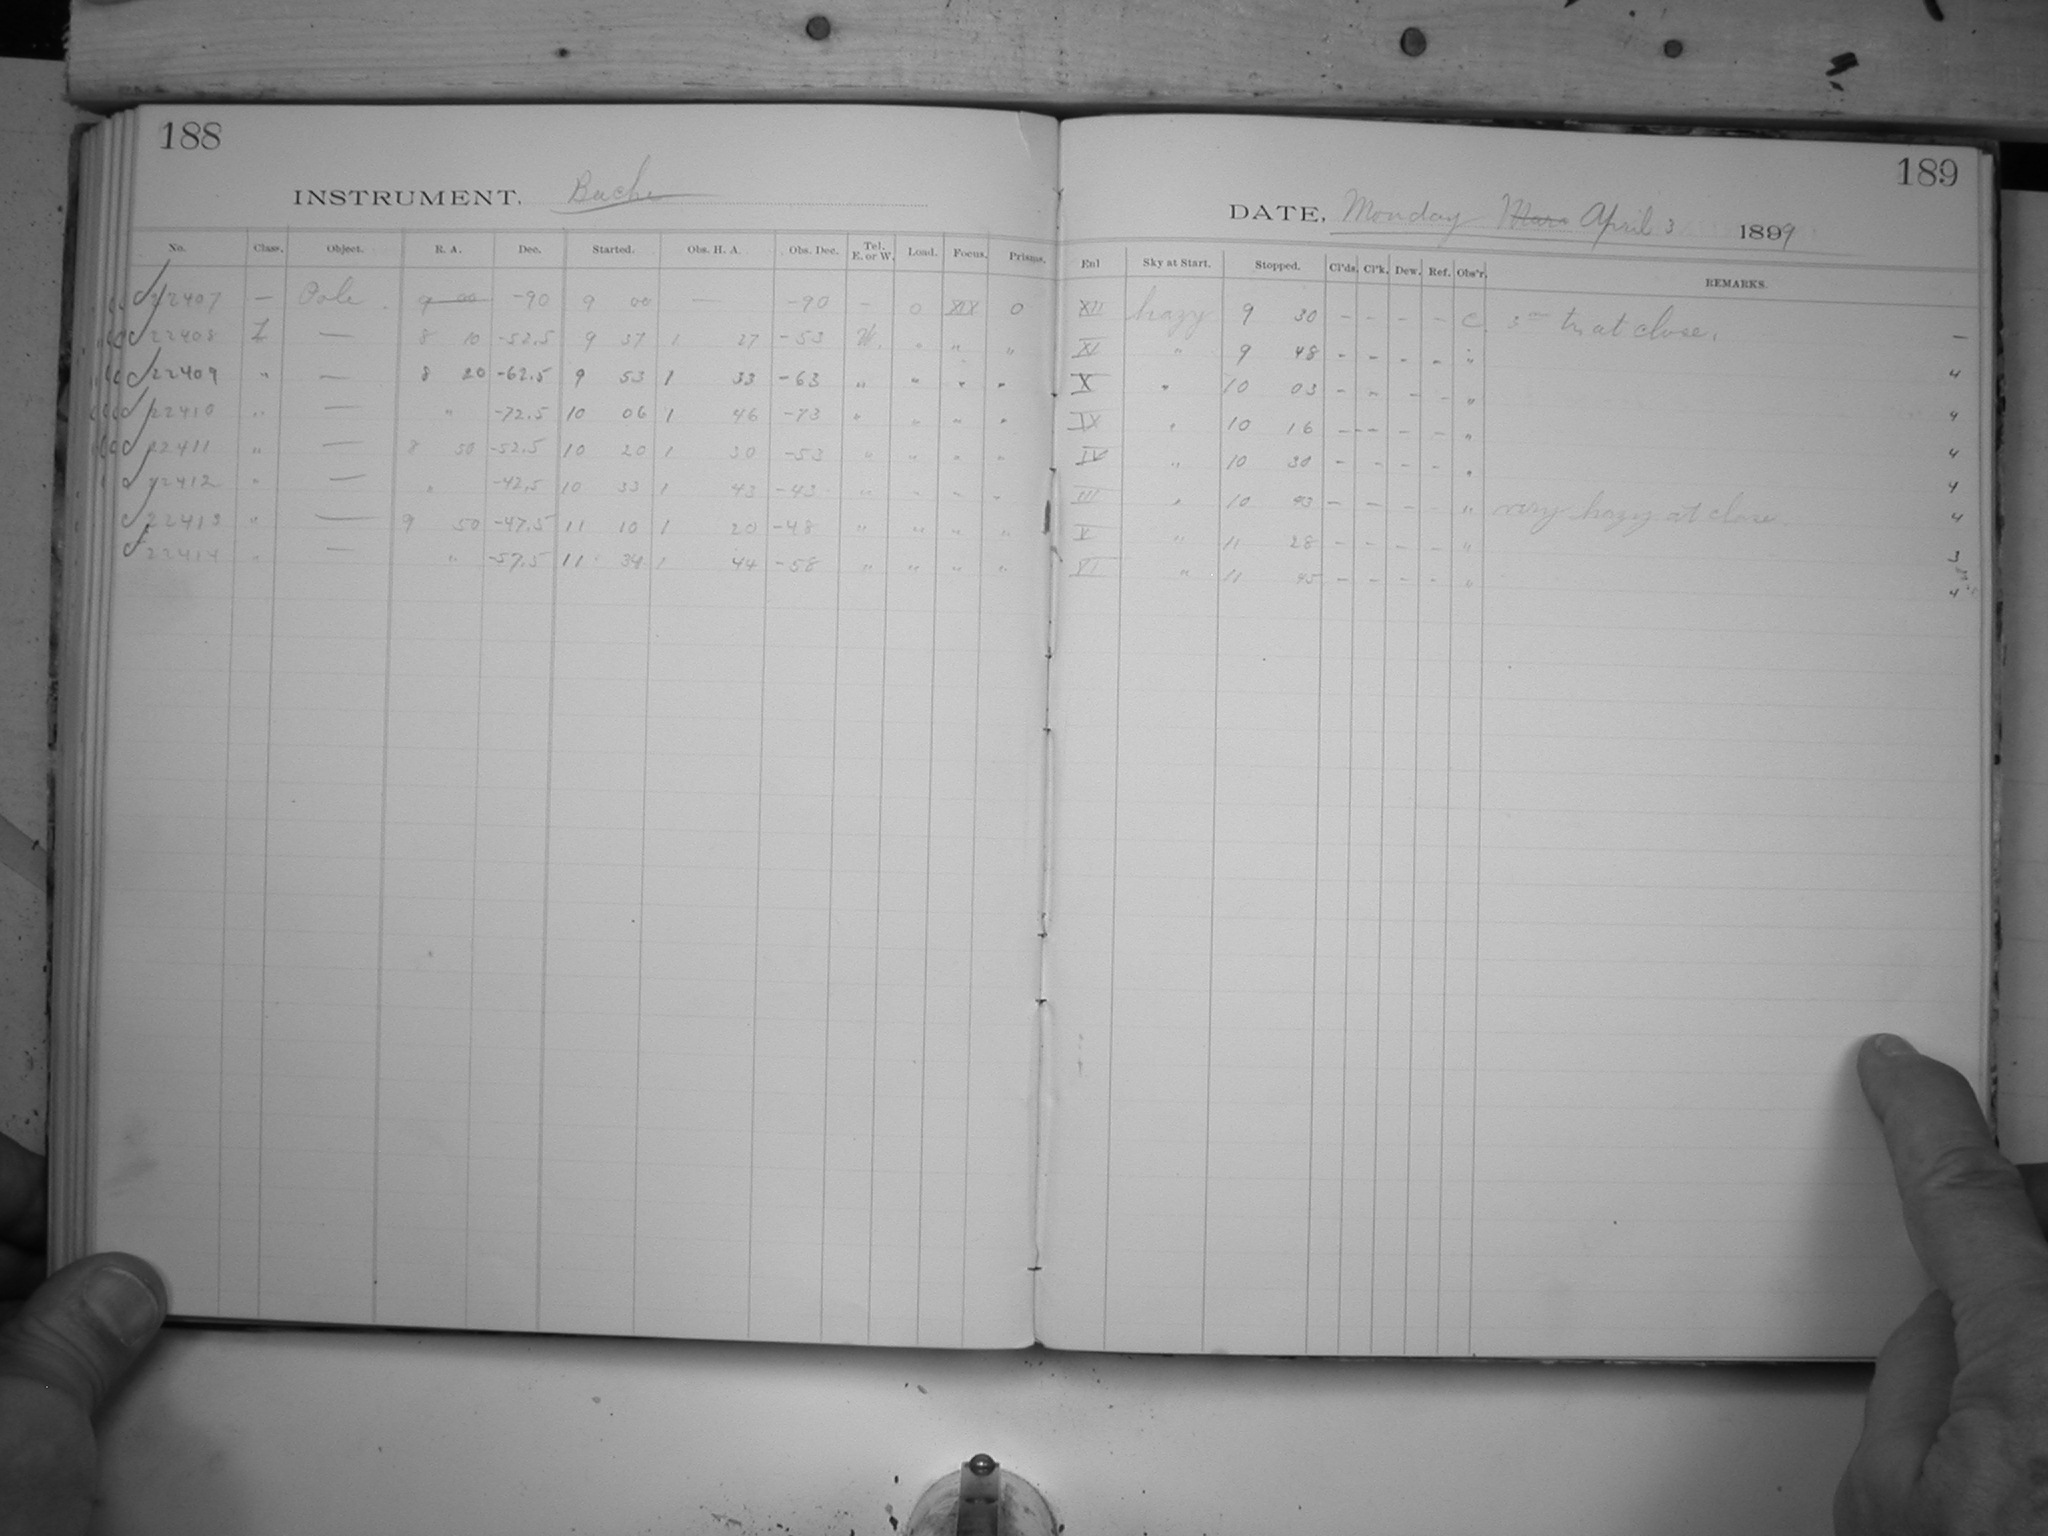 188
INSTRUMENT. Bache
No. Class. Object. R. A. Dec. Started. Obs. H. A. Obs. Dec. Tel. E. or W. Load. Focus. Prisms.
22407 — Pole 9 00 -90 9 00 — -90 - 0 XIX 0
22408 L — 8 10 -52.5 9 37 1 27 -53 W. " " "
22409 " — 8 20 -62.5 9 53 1 33 -63 " " " "
22410 " — " -72.5 10 06 1 46 -73 " " " "
22411 " — 8 50 -52.5 10 20 1 30 -53 " " " "
22412 " — " -42.5 10 33 1 43 -43 " " " "
22413 " — 9 50 -47.5 11 10 1 20 -48 " " " "
22414 " — " -57.5 11 34 1 44 -58 " " " "
189
DATE, Monday April 3 1899
Enl Sky at Start. Stopped. Cl'ds. Cl'k. Dew. Ref. Obs'r. REMARKS.
XII hazy 9 30 - - - - C. at close. —
XI " 9 48 - - - - " 4
X " 10 03 - - - - " 4
IX " 10 16 - - - - " 4
IV " 10 30 - - - - " 4
III " 10 43 - - - - " very hazy at close 4
V " 11 28 - - - - " 3
VI " 11 45 - - - - " 4